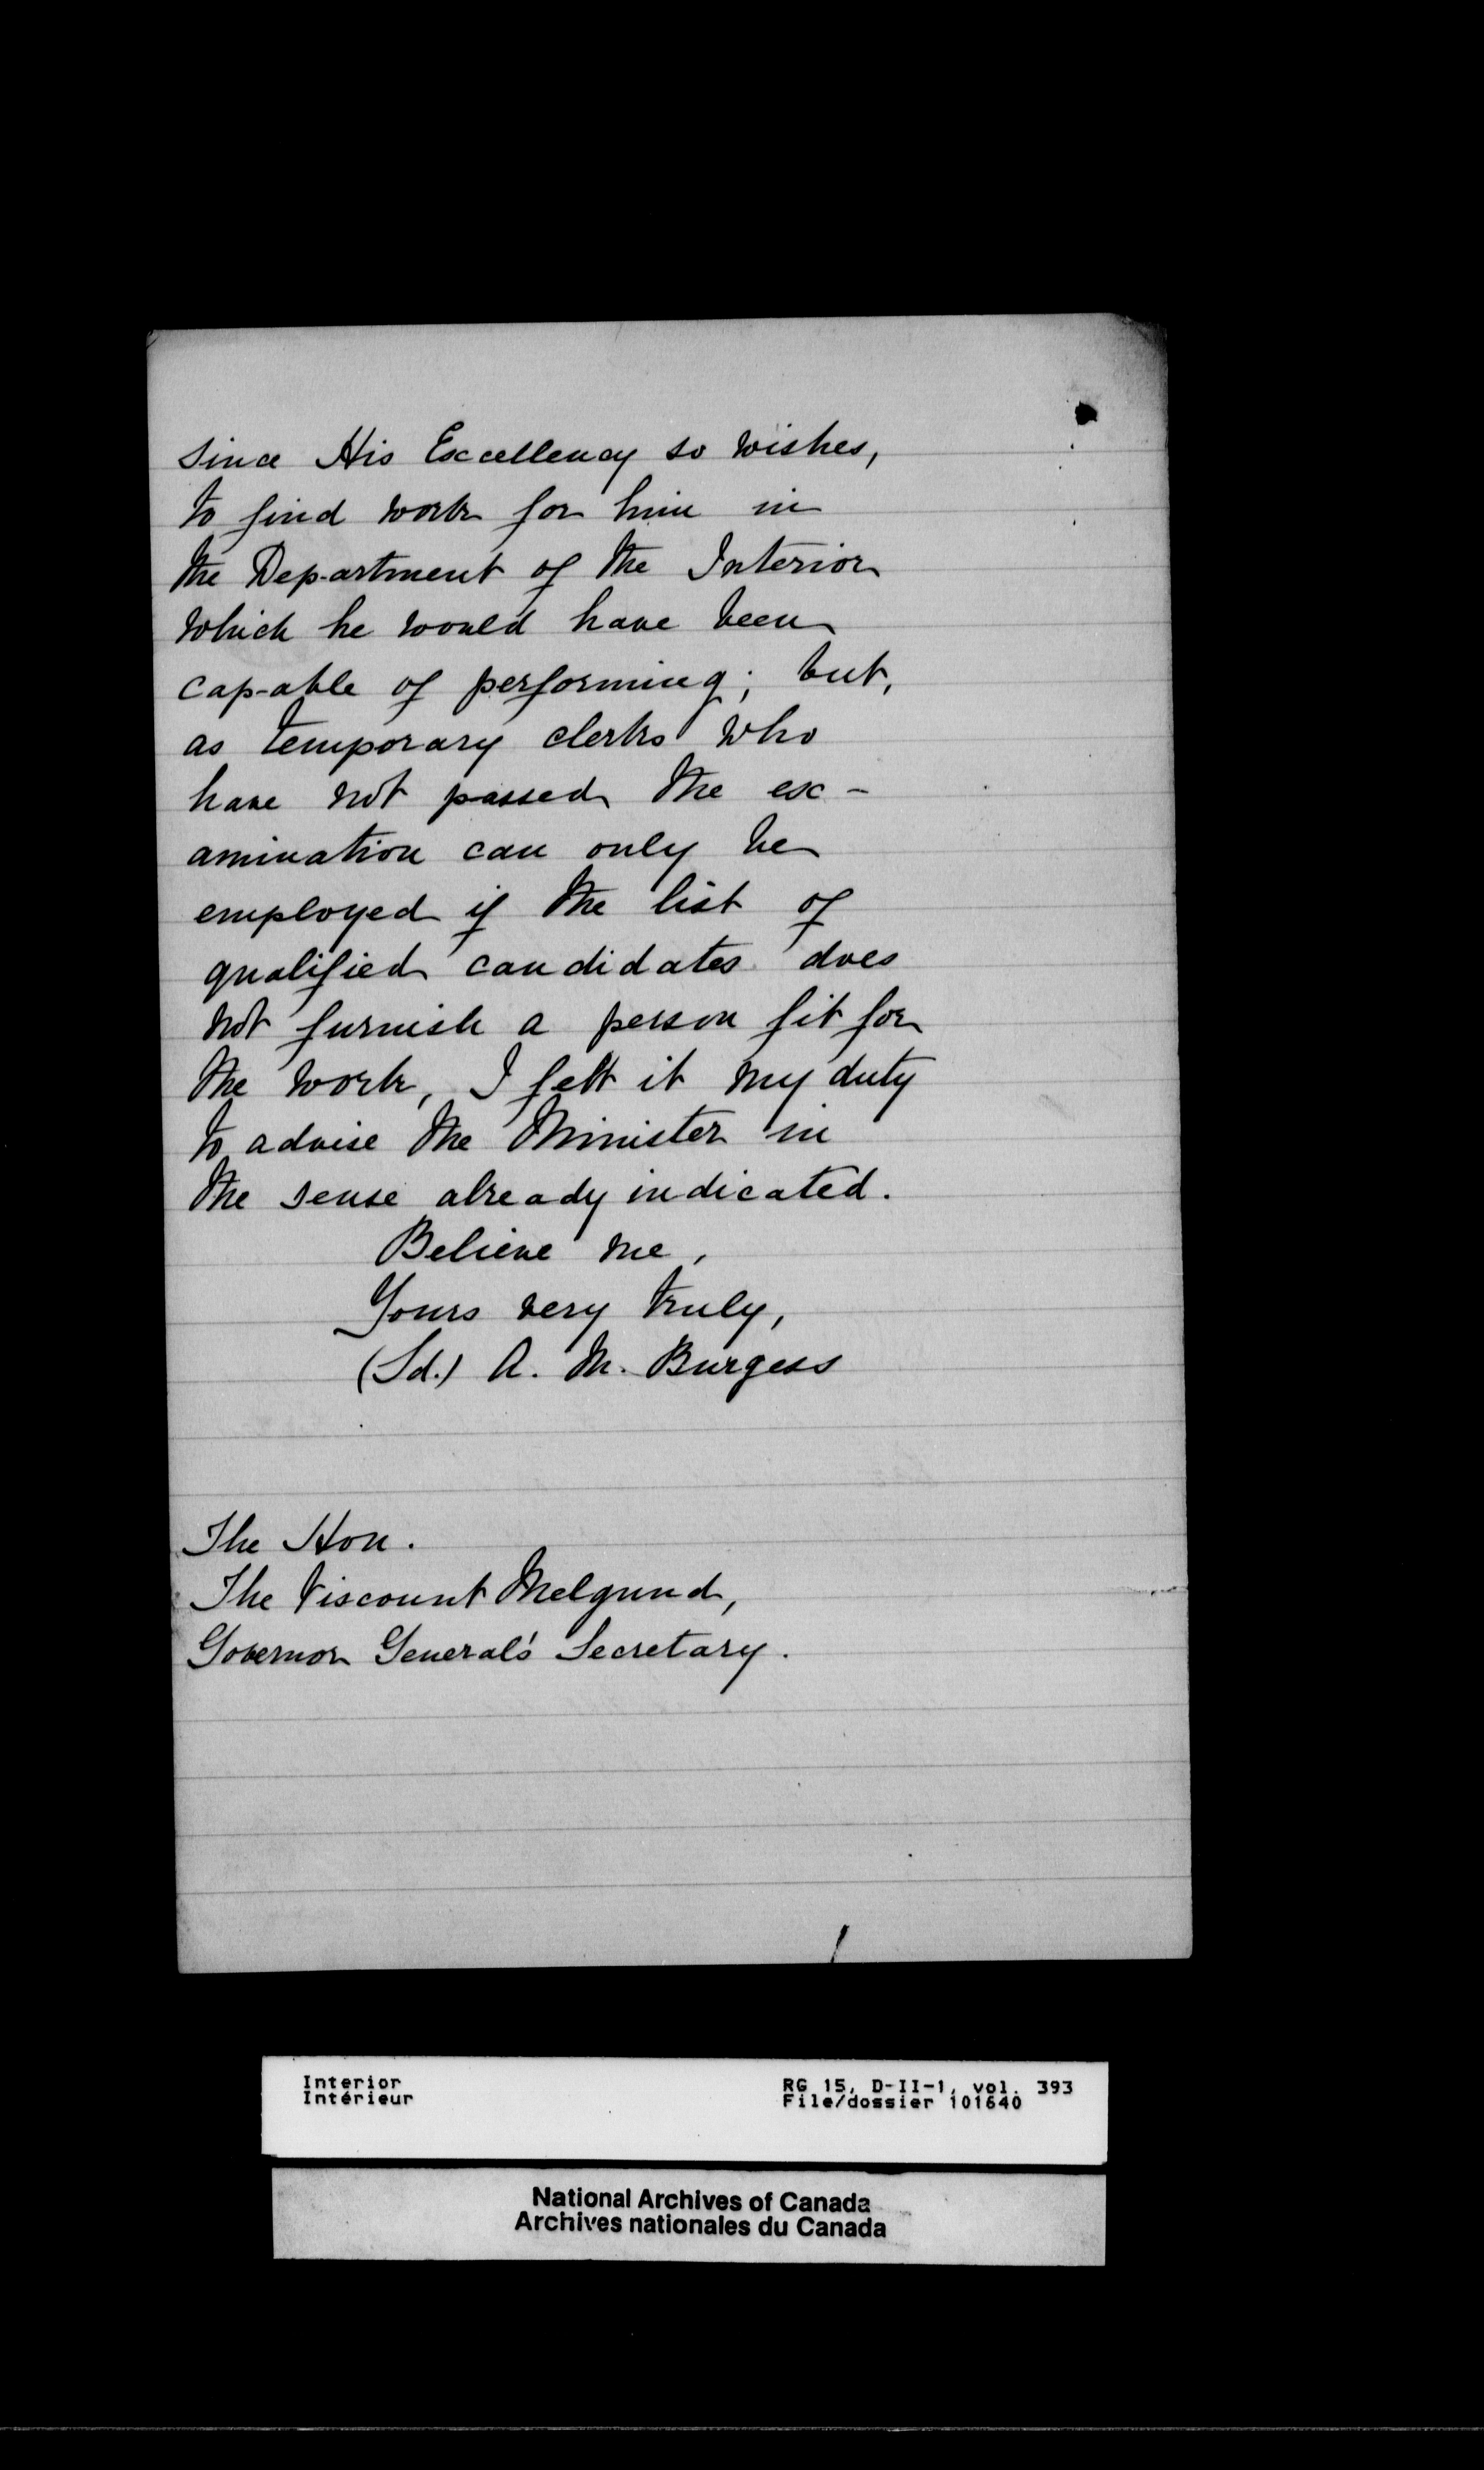 since His Excellency so wishes,
to find work for him in
the Department of the Interior
which he would have been
capable of performing; but,
as temporary clerks who
have not passed the ex-
amination can only be
employed if the list of
qualified candidates does
not furnish a person fit for
the work, I felt it my duty
to advise the Minister in
the sense already indicated.
Believe me,
Yours very truly,
(Sd.) A. M. Burgess
The Hon.
The Viscount Melgund,
Governor General's Secretary.
Interior
Intérieur
RG 15, D-II-1, vol. 393
File/dossier 101640
National Archives of Canada
Archives nationales du Canada